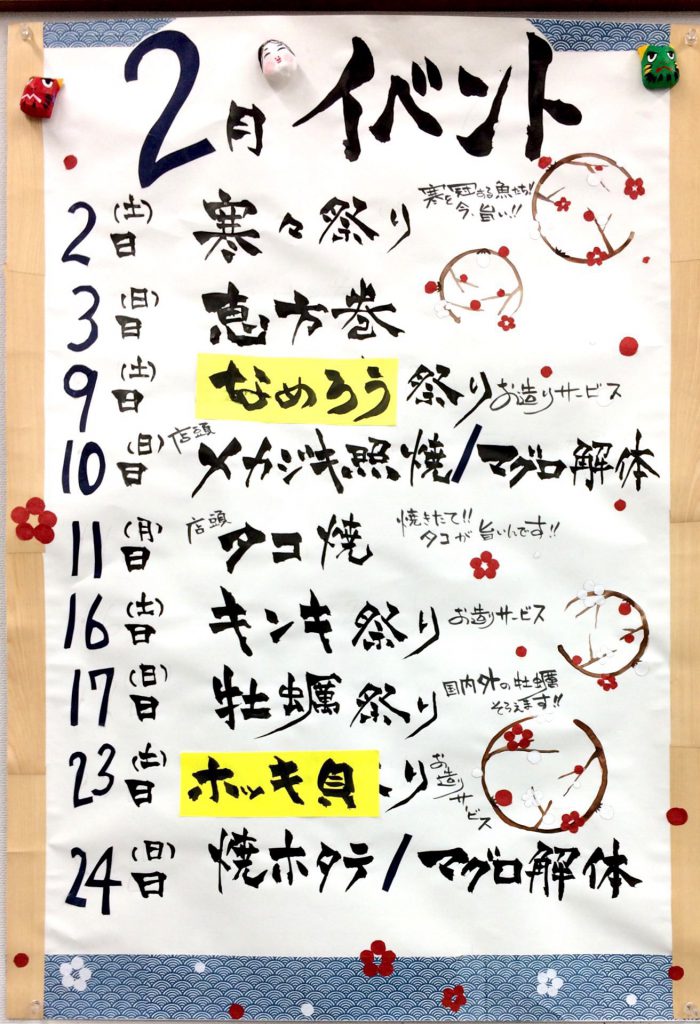 2月 イベント
2日(土) 寒々祭り 寒と冠する魚たち!! を今、旨い!!
3日(日) 恵方巻
9日(土) なめろう祭り お造りサービス
10日(日) 店頭 メカジキ照焼/マグロ解体
11日(月) 店頭 タコ焼 焼きたて!! タコが旨いんです!!
16日(土) キンキ祭り お造りサービス
17日(日) 牡蠣祭り 国内外の牡蠣 そろえます!!
23日(土) ホッキ貝り お造りサービス
24日(日) 焼ホタテ/マグロ解体